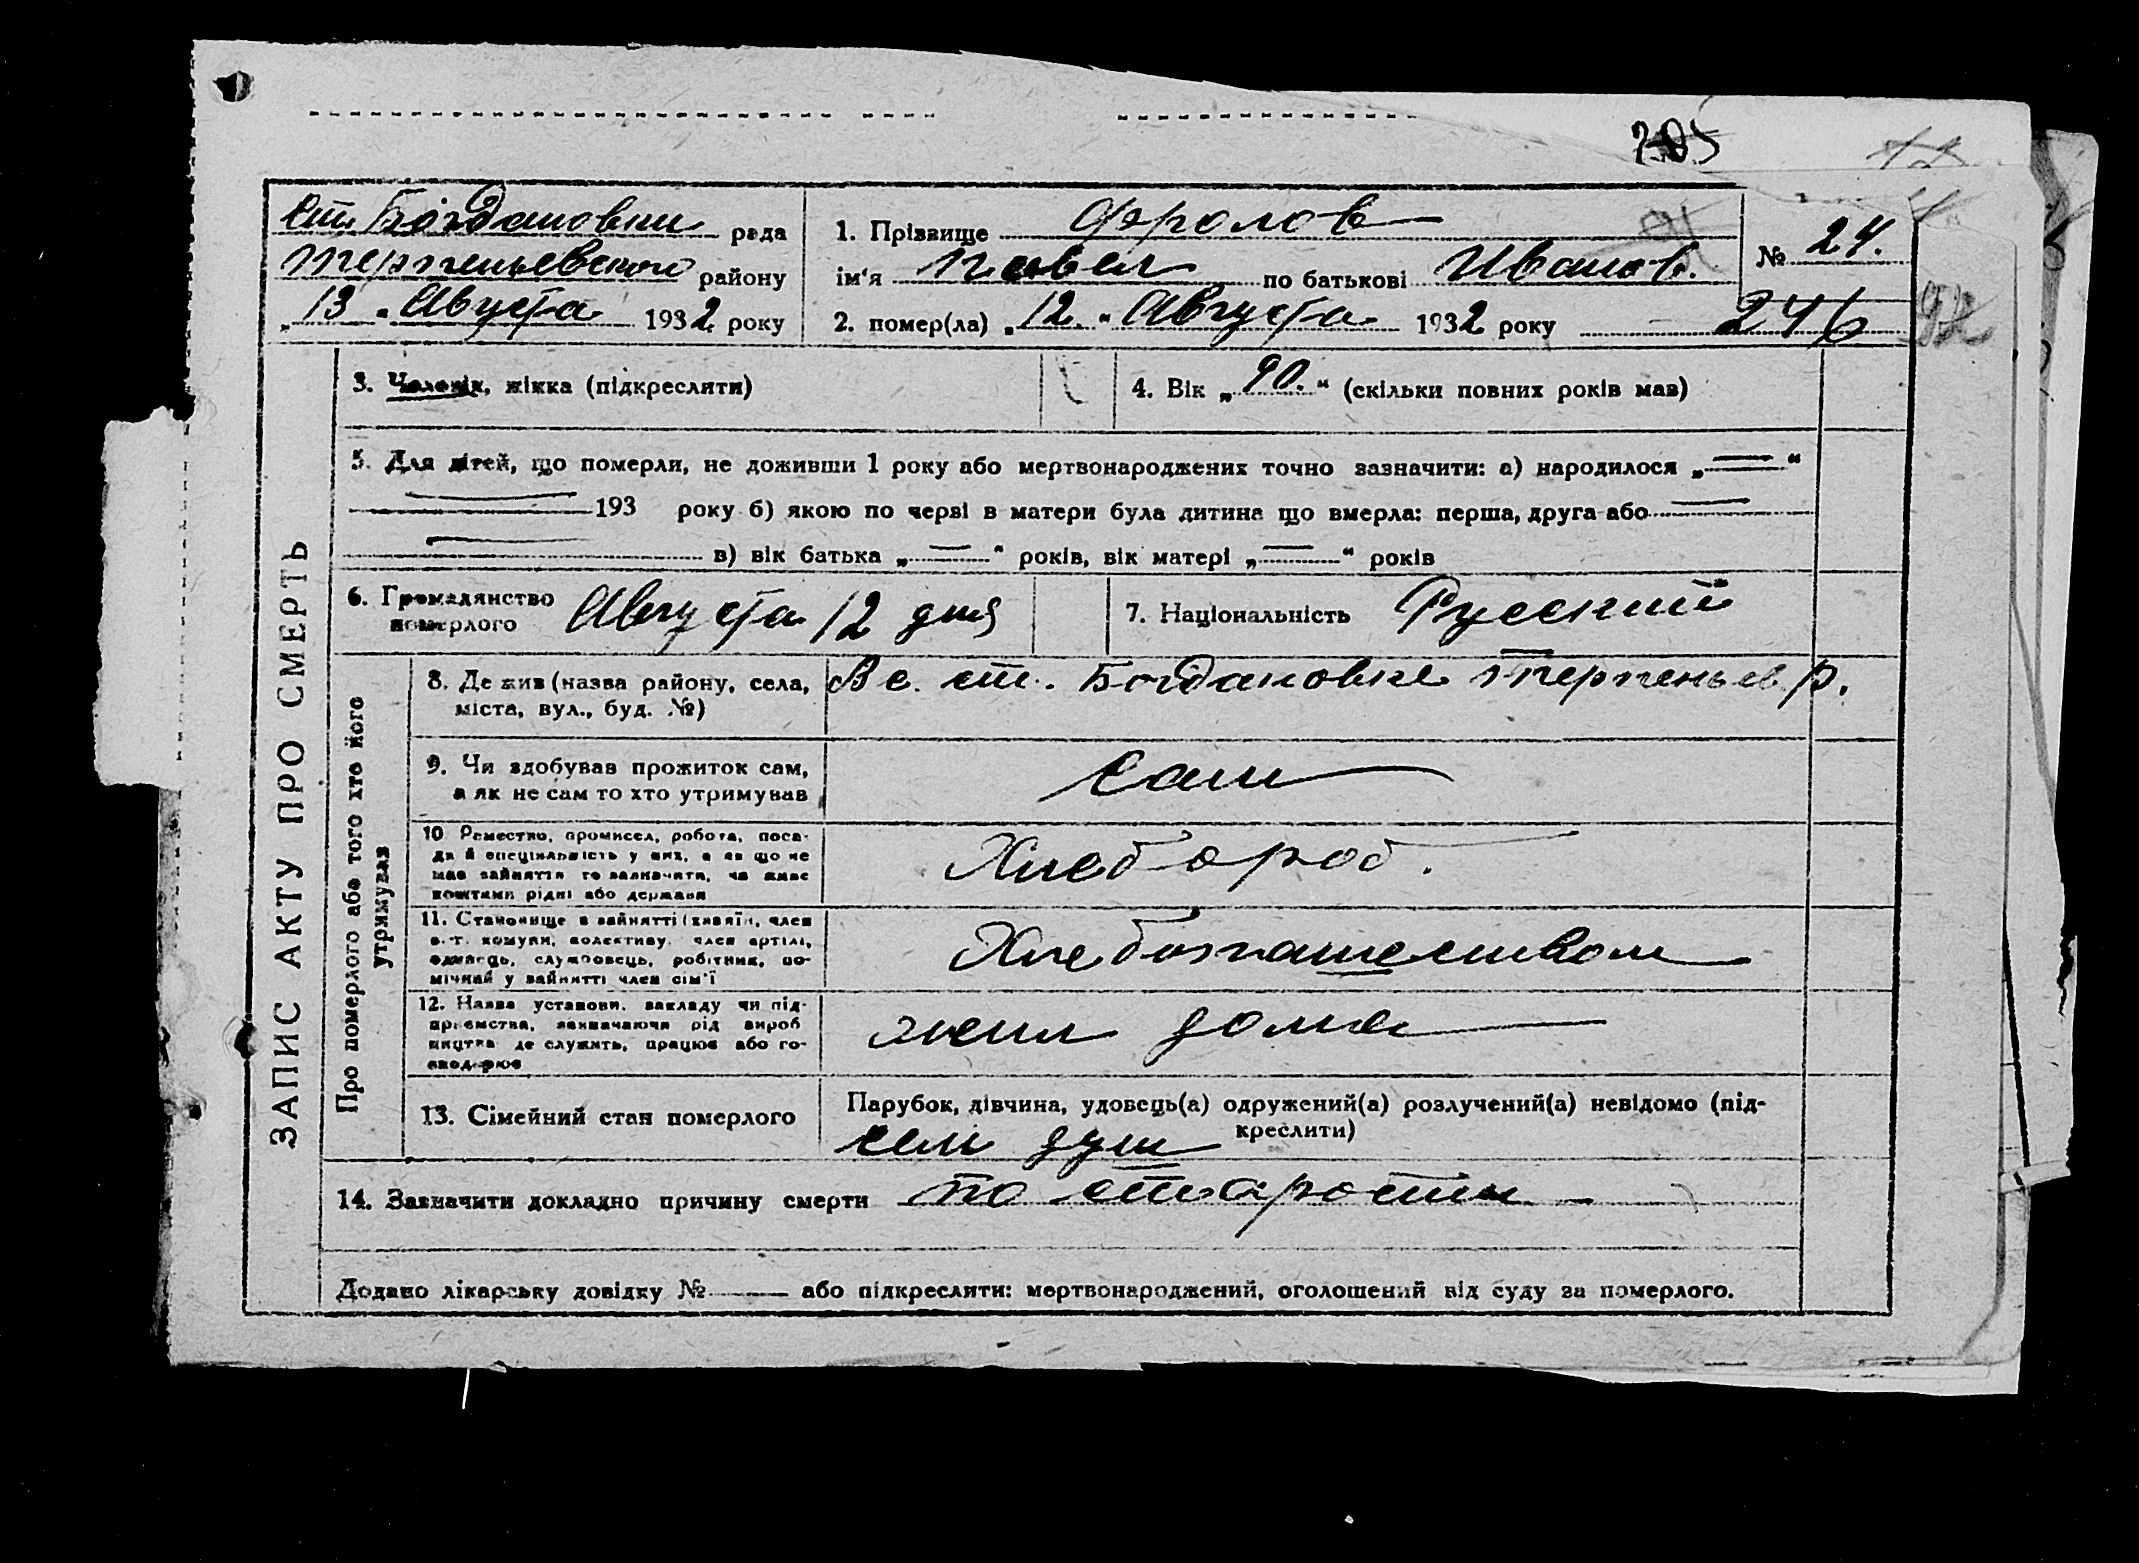 205
Ст. Богдановки рада
Терпеньевского району
„13“ Августа 1932 року
1. Прізвище Фролов
ім‘я Павел по батькові Иванов.
2. помер(ла) „12.“ Августа 1932 року
№ 24.
246
ЗАПИС АКТУ ПРО СМЕРТЬ
3. Чоловік, жінка (підкреслити)
4. Вік „90.“ (скільки повних років мав)
5. Для дітей, що померли, не доживши 1 року або мертвонароджених точно зазначити: а) народилося „—“
193 року б) якою по черві в матери була дитина що вмерла: перша, друга або
в) вік батька „—“ років, вік матері „—“ років
6. Громадянство
померлого Августа 12 дня
7. Національність Русский
Про померлого або того хто його
утримував
8. Де жив (назва району, села,
міста, вул., буд. №)
В с. ст. Богдановке Терпеньев. р.
9. Чи здобував прожиток сам,
а як не сам то хто утримував
Сам
10. Ремество, промисел, робота, поса-
да й спеціяльність у них, а як що не
мав зайняття то зазначити, чи живе
коштами рідні або держави
Хлебороб.
11. Становище в зайнятті (хазяїн, член
с.-г. комуни, колективу, член артілі,
одинець, службовець, робітник, по-
мічний у зайнятті член сім‘ї
Хлебопашеством
12. Назва установи, закладу чи під-
приємства, зазначаючи рід вироб
ництва де служить, працює або го-
сподарює
жил дома
13. Сімейний стан померлого
Парубок, дівчина, удовець(а) одружений(а) розлучений(а) невідомо (під-
креслити)
сем душ
14. Зазначити докладно причину смерти по старости
Додано лікарську довідку № —— або підкреслити: мертвонароджений, оголошений від суду за померлого.